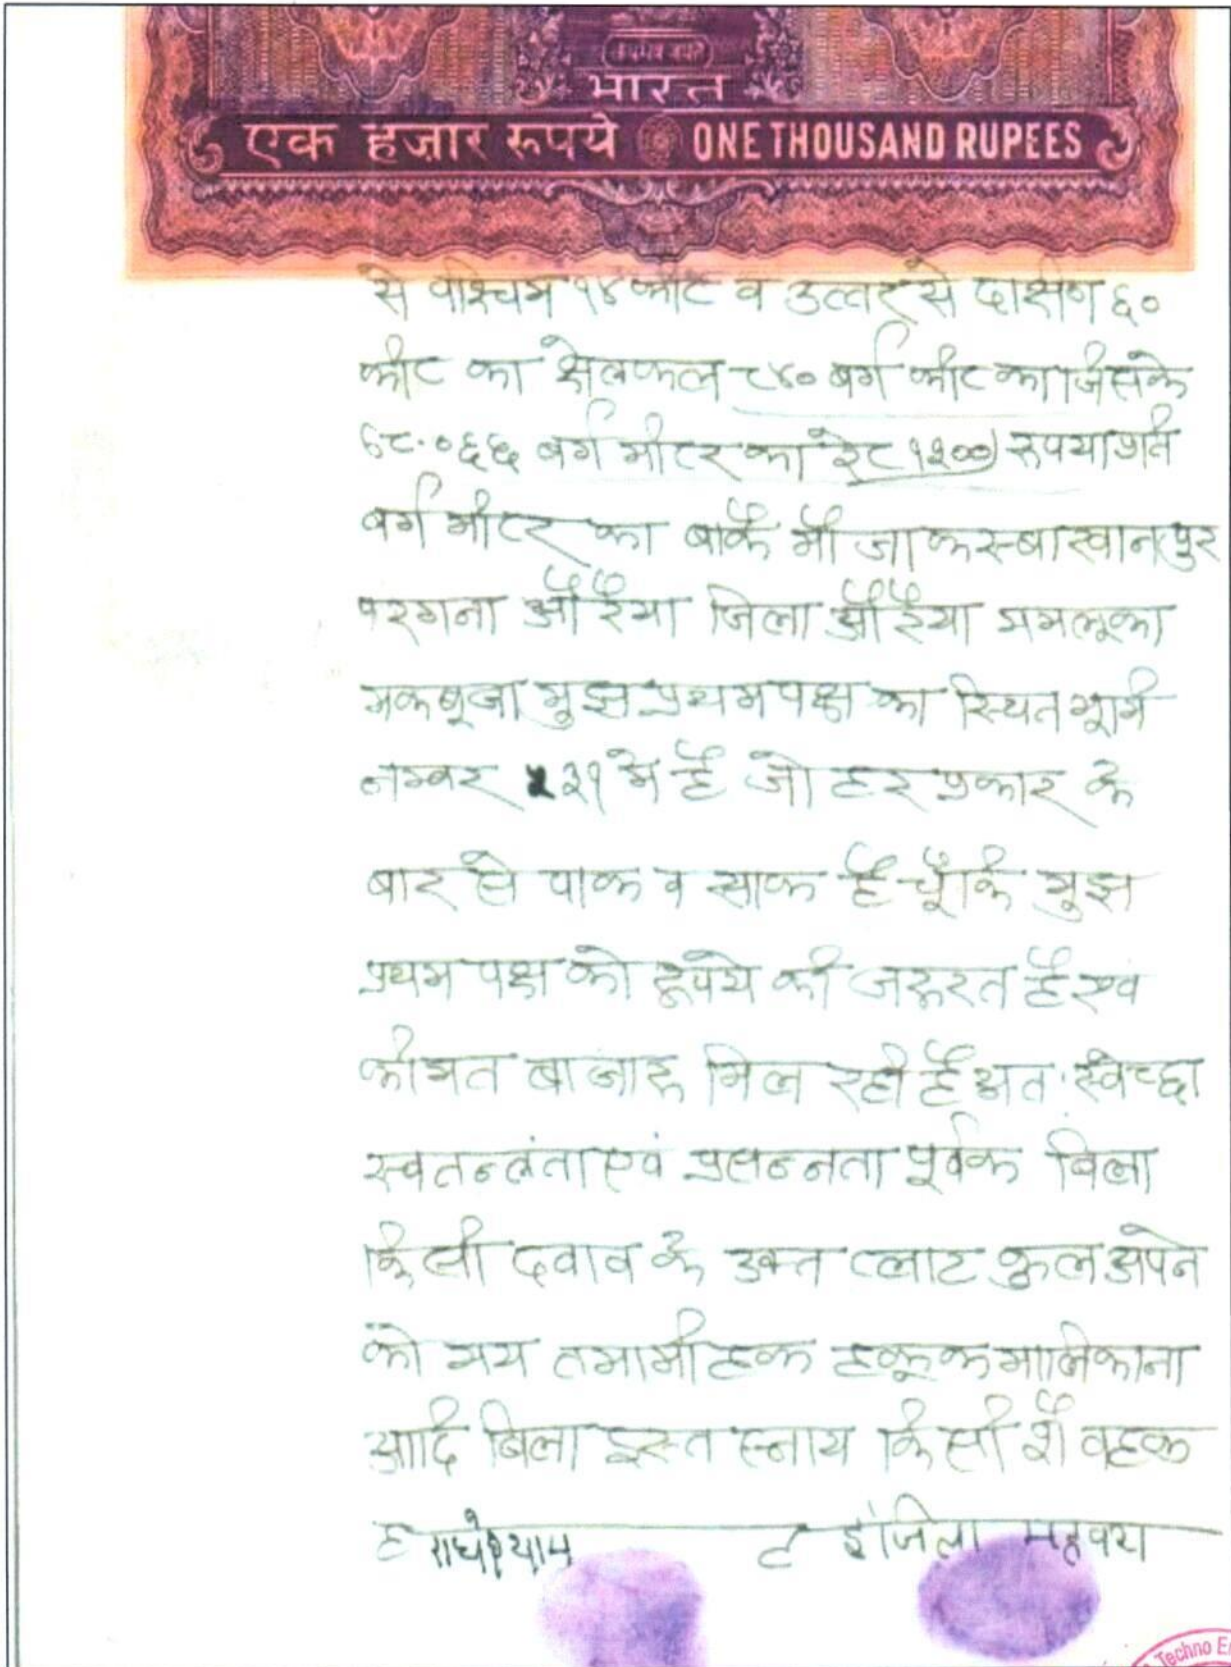 भारत
एक हज़ार रूपये ONE THOUSAND RUPEES
से पश्चिम १४ फीट व उत्तर से दक्षिण ६०
फीट का क्षेत्रफल ८४० बर्ग फीट का जिसके
बर्ग मीटर का रेट रूपया प्रति
बर्ग मीटर का बाकै मौजा कस्बा खानपुर
परगना औरैया जिला औरैया ममलूका
मकबूजा मुझ प्रथम पक्ष का स्थित भूमि
नम्बर में है जो हर प्रकार के
बार से पाक व साफ है चूंकि मुझ
प्रथम पक्ष को रूपये की जरूरत है एवं
कीमत बाजारू मिल रही है अतः स्वेच्छा
स्वतन्त्रंता एवं प्रसन्नता पूर्वक बिला
किसी दवाव के उक्त प्लाट कुल अपने
को मय तमामी हक हकूक मालिकाना
आदि बिला इस्तस्नाय किसी शै वहक
ह राधेश्याम ह इंजिला
Techno